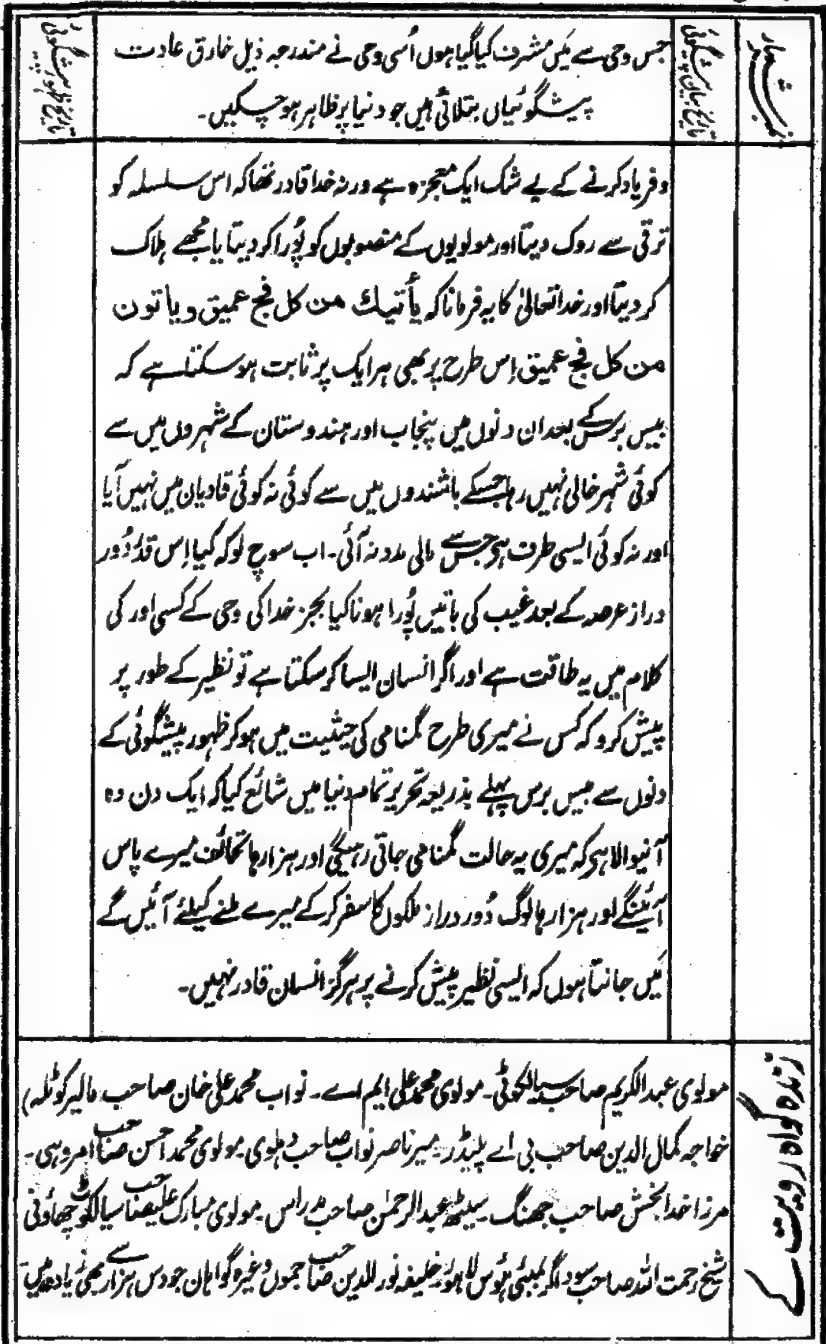 نمبر شمار
تاریخ بیان پیشگوئی
جس وحی سے مَیں مشرف کیا گیا ہوں اُسی وحی نے مندرجہ ذیل خارق عادت
پیشگوئیاں بتلائی ہیں جو دنیا پر ظاہر ہو چکیں۔
تاریخ ظہور پیشگوئی
و فریاد کرنے کے بے شک ایک معجزہ ہے ورنہ خدا قادر تھا کہ اس سلسلہ کو
ترقی سے روک دیتا اور مولویوں کے منصوبوں کو پُورا کر دیتا یا مجھے ہلاک
کر دیتا اور خدا تعالیٰ کا یہ فرمانا کہ یأتیك من کل فج عمیق و یاتون
من کل فج عمیق اِس طرح پر بھی ہر ایک پر ثابت ہو سکتا ہے کہ
بیس برس کے بعد ان دنوں میں پنجاب اور ہندوستان کے شہروں میں سے
کوئی شہر خالی نہیں رہا جسکے باشندوں میں سے کوئی نہ کوئی قادیان میں نہیں آیا
اور نہ کوئی ایسی طرف ہی جس سے مالی مدد نہ آئی۔ اب سوچ لو کہ کیا اِس قدر دُور
دراز عرصہ کے بعد غیب کی باتیں پُورا ہونا کیا بجز خدا کی وحی کے کسی اور کی
کلام میں یہ طاقت ہے اور اگر انسان ایسا کر سکتا ہے تو نظیر کے طور پر
پیش کرو کہ کس نے میری طرح گمنامی کی حیثیت میں ہو کر ظہور پیشگوئی کے
دنوں سے بیس برس پہلے بذریعہ تحریر تمام دنیا میں شائع کیا کہ ایک دن وہ
آنیوالا ہی کہ میری یہ حالت گمنامی جاتی رہیگی اور ہزار ہا تحائف میرے پاس
آئینگے اور ہزار ہا لوگ دُور دراز ملکوں کا سفر کر کے میرے ملنے کیلئے آئیں گے
مَیں جانتا ہوں کہ ایسی نظیر پیش کرنے پر ہرگز انسان قادر نہیں۔
زندہ گواہ رویت کے
مولوی عبد الکریم صاحب سیالکوٹی۔ مولوی محمد علی ایم اے۔ نواب محمد علی خان صاحب مالیر کوٹلہ)
خواجہ کمال الدین صاحب بی اے پلیڈر۔ میر ناصر نواب صاحب دہلوی۔ مولوی محمد احسن صاحب امروہی۔
مرزا خدا بخش صاحب جھنگ۔ سیٹھ عبد الرحمٰن صاحب مدراس۔ مولوی مبارک علی صاحب سیالکوٹ چھاؤنی
شیخ رحمت اللہ صاحب سوداگر بمبئی ہؤس لاہور۔ خلیفہ نور الدین صاحب جموں وغیرہ گواہان جو دس ہزار سے بھی زیادہ ہیں